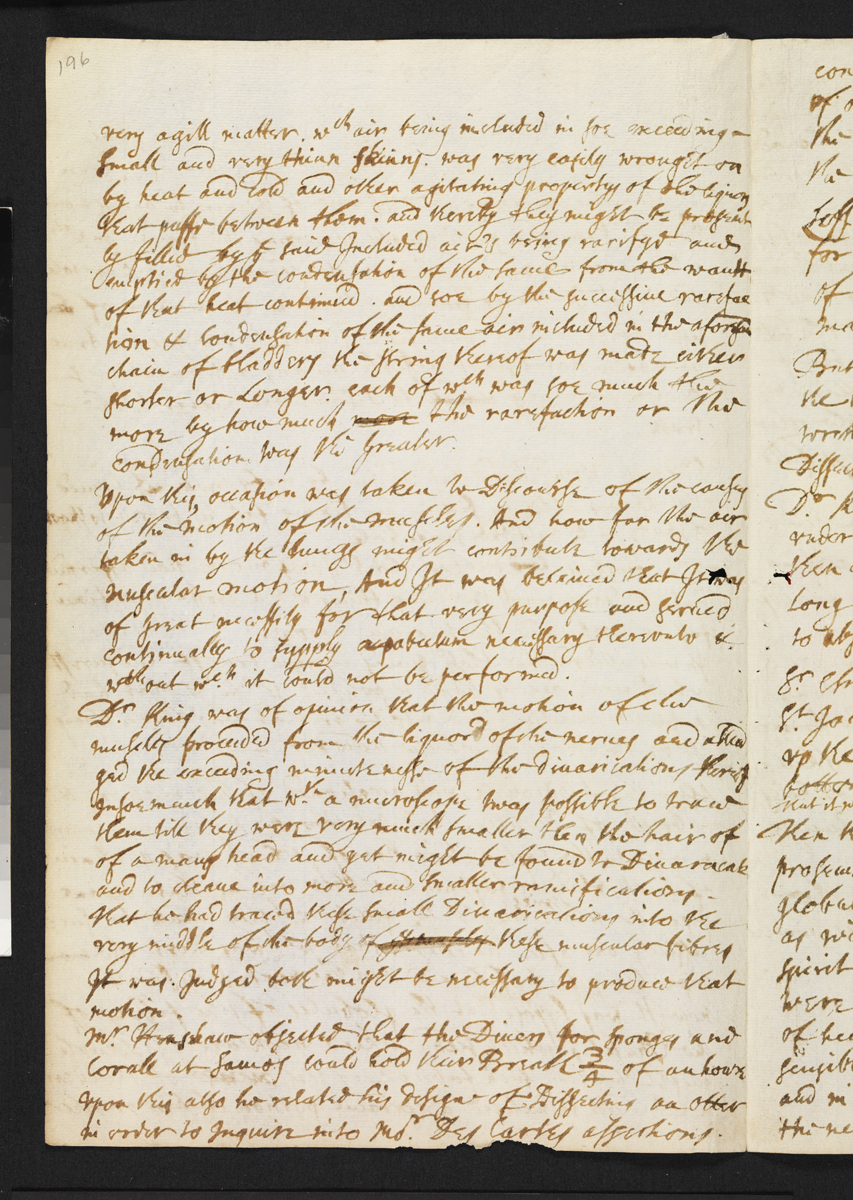 196
very agill matter. wch air being included in soe exceeding
small and very thinn skinns. was very easily wrought on
by heat and cold and other agitating propertys of the liquors
that passe between them. and thereby they might be
by filled by ye said Included air's being rarifyd and
emptied by the condensation of the same from the want
of that heat continued. and soe by the successive rarefac
tion & condensation of the same air included in the aforesaid
chain of bladders the string thereof was made either
shorter or Longer. each of wch was soe much the
more by how much more the rarefaction or the
condensation was the greater.
Upon this occasion was taken to Discourse of the causes
of the motion of the muscles. And how far the air
taken in by the lungs might contribute towards the
muscular motion, And It was that It was
of great necessity for that very purpose and served
continually to supply a pabulum necessary thereunto &
wthout wch it could not be performed.
Dr. King was of opinion that the motion of the
muscles proceeded from the liquor of the nerves and alled
ged the exceeding minutenesse of the divarications
Insoemuch that wth a microscope twas possible to trace
them till they were very much smaller then the hair of
of a mans head and yet might be found to Divaricate
and to cleave into more and smaller ramifications.
that he had traced these small Divarications into the
very middle of the body of these muscular fibres
It was Judged both might be necessary to produce that
motion.
Mr. Henshaw objected that the Divers for sponges and
Corall at Samos could hold their Breath 3/4 of an howr
Upon this also he related his designe of Dissecting an otter
in order to Inquire into Mor. Des Cartes assertions.
con
of
the
the
for
of
ma
But
the
Dissec
Dr. K
under
then
Long
to ob
Sr.
St. Ja
up the
botto
then
prosecu
globu
as wi
spirit
were
of he
sensib
and in
the ne